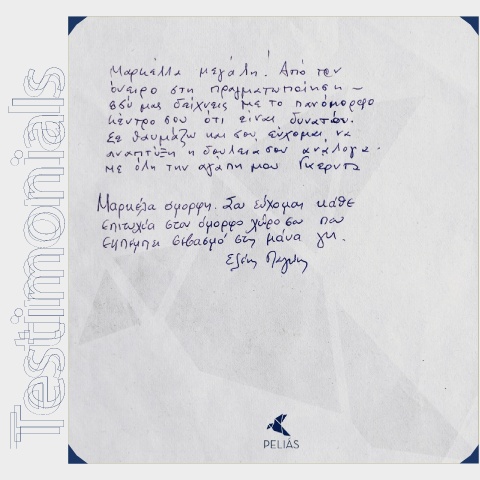 Testimonials
Μαρκέλλα μεγάλη! Από το
όνειρο στη πραγματοποίηση –
εσύ μας δείχνεις με το πανόμορφο
κέντρο σου ότι είναι δυνατόν.
Σε θαυμάζω και σου εύχομαι να
αναπτύξη η δουλειά σου ανάλογα.
Με όλη την αγάπη μου
Μαρκέλα όμορφη. Σου εύχομαι κάθε
επιτυχία στον όμορφο χώρο σου που
εκπέμπει σεβασμό στη μάνα γη.
PELIÀS